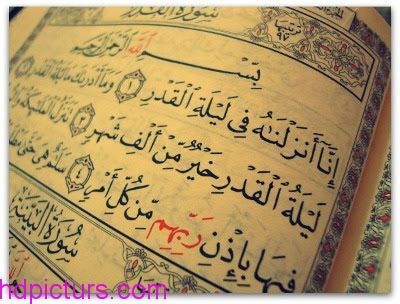 سُورَةُ القَدْرِ
بِسْمِ ٱللَّهِ ٱلرَّحْمَٰنِ ٱلرَّحِيمِ
إِنَّآ أَنزَلْنَٰهُ فِى لَيْلَةِ ٱلْقَدْرِ ١ وَمَآ أَدْرَىٰكَ مَا لَيْلَةُ ٱلْقَدْرِ ٢
لَيْلَةُ ٱلْقَدْرِ خَيْرٌ مِّنْ أَلْفِ شَهْرٍ ٣ تَنَزَّلُ ٱلْمَلَٰٓئِكَةُ
فِيهَا بِإِذْنِ رَبِّهِم مِّن كُلِّ أَمْرٍ ٤ سَلَٰمٌ هِىَ حَتَّىٰ
سُورَةُ البَيِّنَةِ
hdpicturs.com